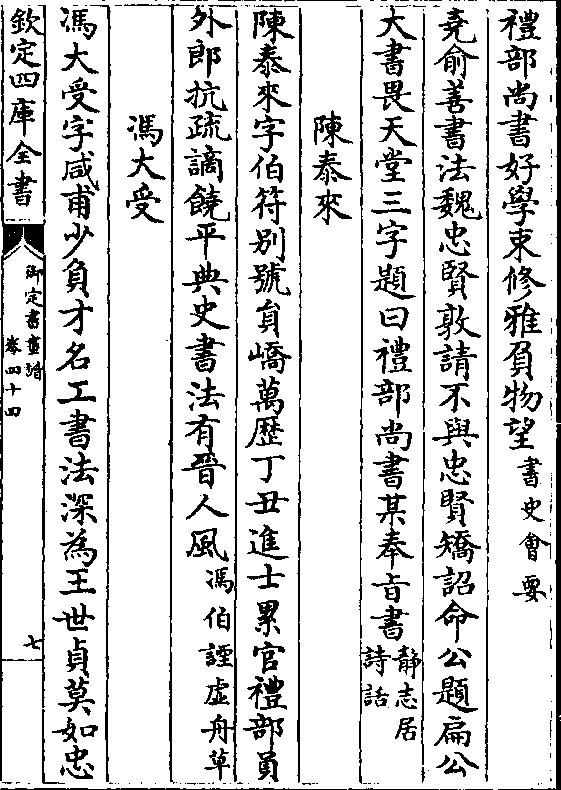 禮部尚書好學束修雅負物望書史會要
堯俞善書法魏忠賢敦請不與忠賢矯詔命公題扁公
大書畏天堂三字題曰禮部尚書某奉旨書靜志居詩話
陳泰來
陳泰來字伯符别號負嶠萬歷丁丑進士累官禮部員
外郎抗疏謫饒平典史書法有晉人風馮伯謹虛舟草
馮大受
馮大受字咸甫少負才名工書法深為王世貞莫如忠
欽定四庫全書
御定書畫譜
卷四十四
七